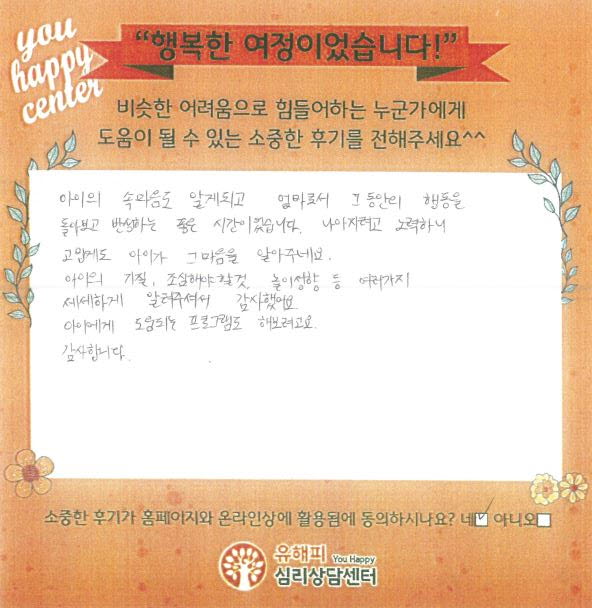 you
happy
center
“행복한 여정이었습니다!”
비슷한 어려움으로 힘들어하는 누군가에게
도움이 될 수 있는 소중한 후기를 전해주세요^^
아이의 속마음도 알게되고 엄마로서 그동안의 행동을
돌아보고 반성하는 좋은 시간이었습니다. 나아지려고 노력하니
고맙게도 아이가 그마음을 알아주네요.
아이의 기질, 조심해야할것, 놀이성향 등 여러가지
세세하게 알려주셔서 감사했어요.
아이에게 도움되는 프로그램도 해보려고요.
감사합니다.
소중한 후기가 홈페이지와 온라인상에 활용됨에 동의하시나요? 네☑ 아니오☐
유해피 You Happy
심리상담센터